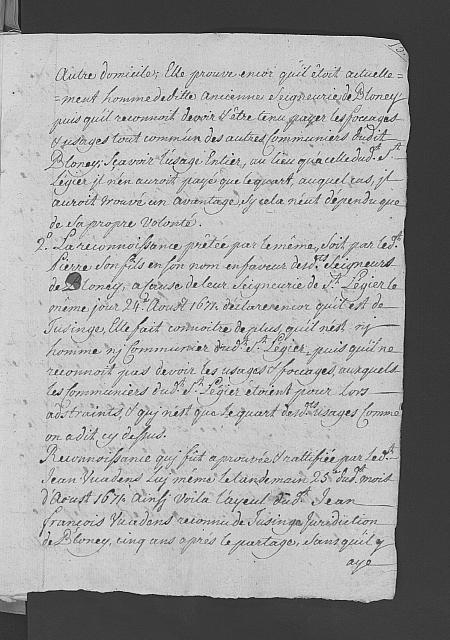 autre domicile; Elle prouve encor qu'il étoit actuelle=
=ment homme deditte ancienne Seigneurie, de Bloney
puis qu'il reconnoit devoir & être tenu payer les focages
& usages tout commun des autres Communiers dudit
Bloney, Sçavoir l'usage Entier, au lieu qu'a celle dud.t S.t
Légier il n'en auroit payé que le quart, auquel cas, il
auroit trouvé un avantage, Sy cela n'eut dépendu que
de sa propre volonté.
2.o La reconnoissance prêtée par le même, soit par led.t
Pierre son fils en son nom en faveur desd.ts Seigneurs
de Bloney, a cause de leur Seigneurie de S.t Légier le
même jour 24.e Aoust 1671. déclare encor qu'il est de
Tusinge, Elle fait connoitre de plus, qu'il n'est nj
homme nj Communier dud.t S.t Légier, puis qu'il ne
reconnoit pas devoir les usages & focages, auxquels
les Communiers dud.t S.t Légier étoient pour lors
adstraints, & quj n'est que le quart desd.ts usages Comme
on a dit cy dessus.
Reconnoissance quj fût aprouvée & rattifiée par led.t
Jean Yuadens luj même le landemain 25.e dud.t mois
d'Aoust 1671. Ainsj voila l'ayeul dud.t Jean
François Yuadens reconnu de Tusinge Jurisdiction
de Bloney, cinq ans après le partage, sans qu'il y
aye